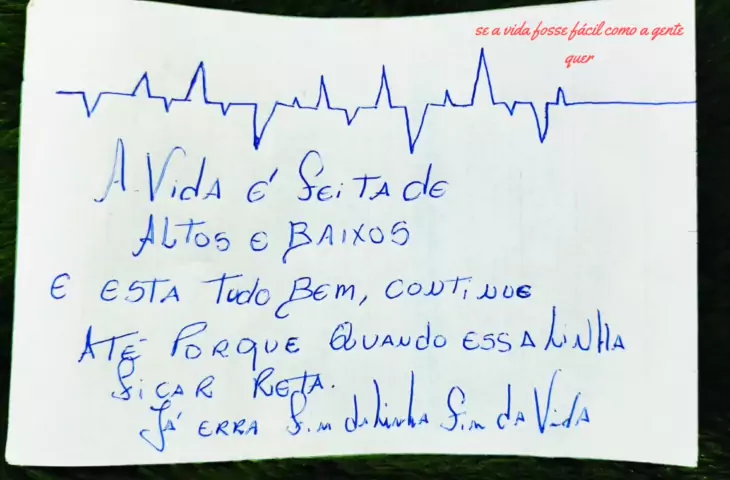 se a vida fosse fácil como a gente
quer
A Vida é feita de
Altos e Baixos
e esta tudo Bem, continue
Até Porque Quando essa linha
ficar Reta.
Já erra fim da linha fim da Vida